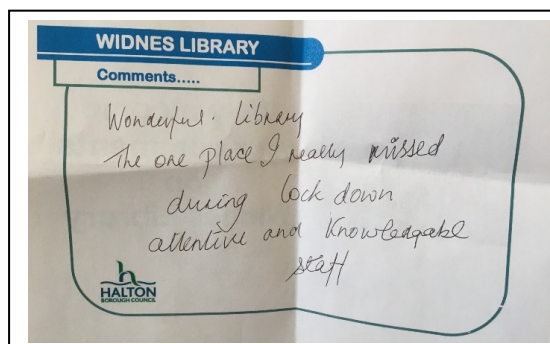 WIDNES LIBRARY
Comments.....
Wonderful. Library
The one place I really missed
during lock down
attentive and knowledgable
staff
HALTON
BOROUGH COUNCIL